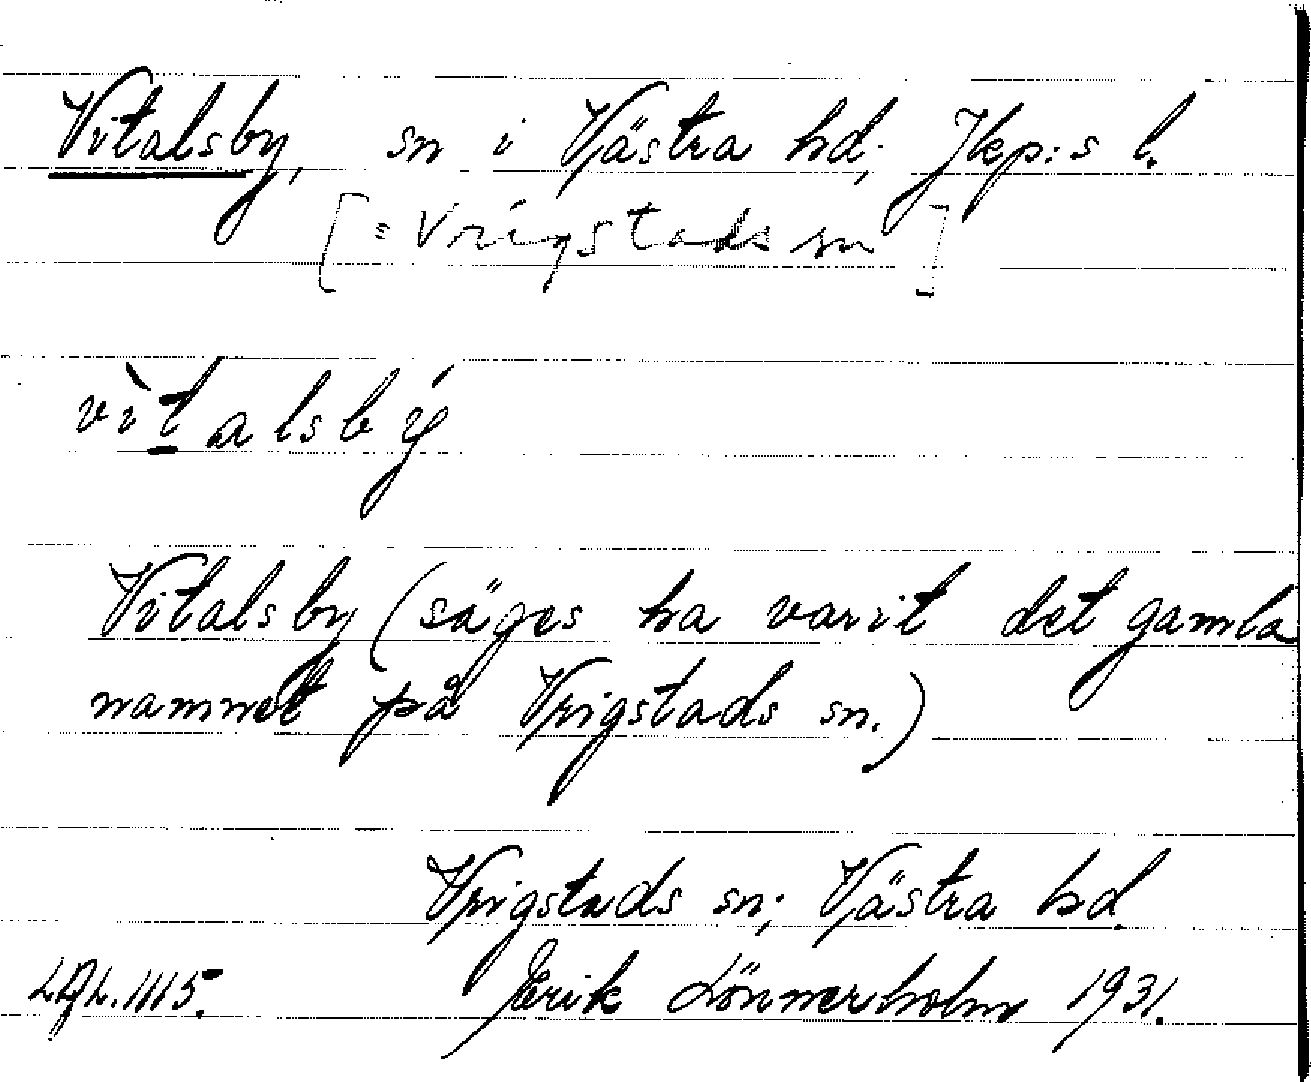 Vitalsby, sn i Västra hd; Jkp:s l.
[= Vrigstads sn]
vìtalsbý
Vitalsby (säges ha varit det gamla
namnet på Vrigstads sn.)
Vrigstads sn; Västra hd
Erik Lönnerholm 1931.
1115.